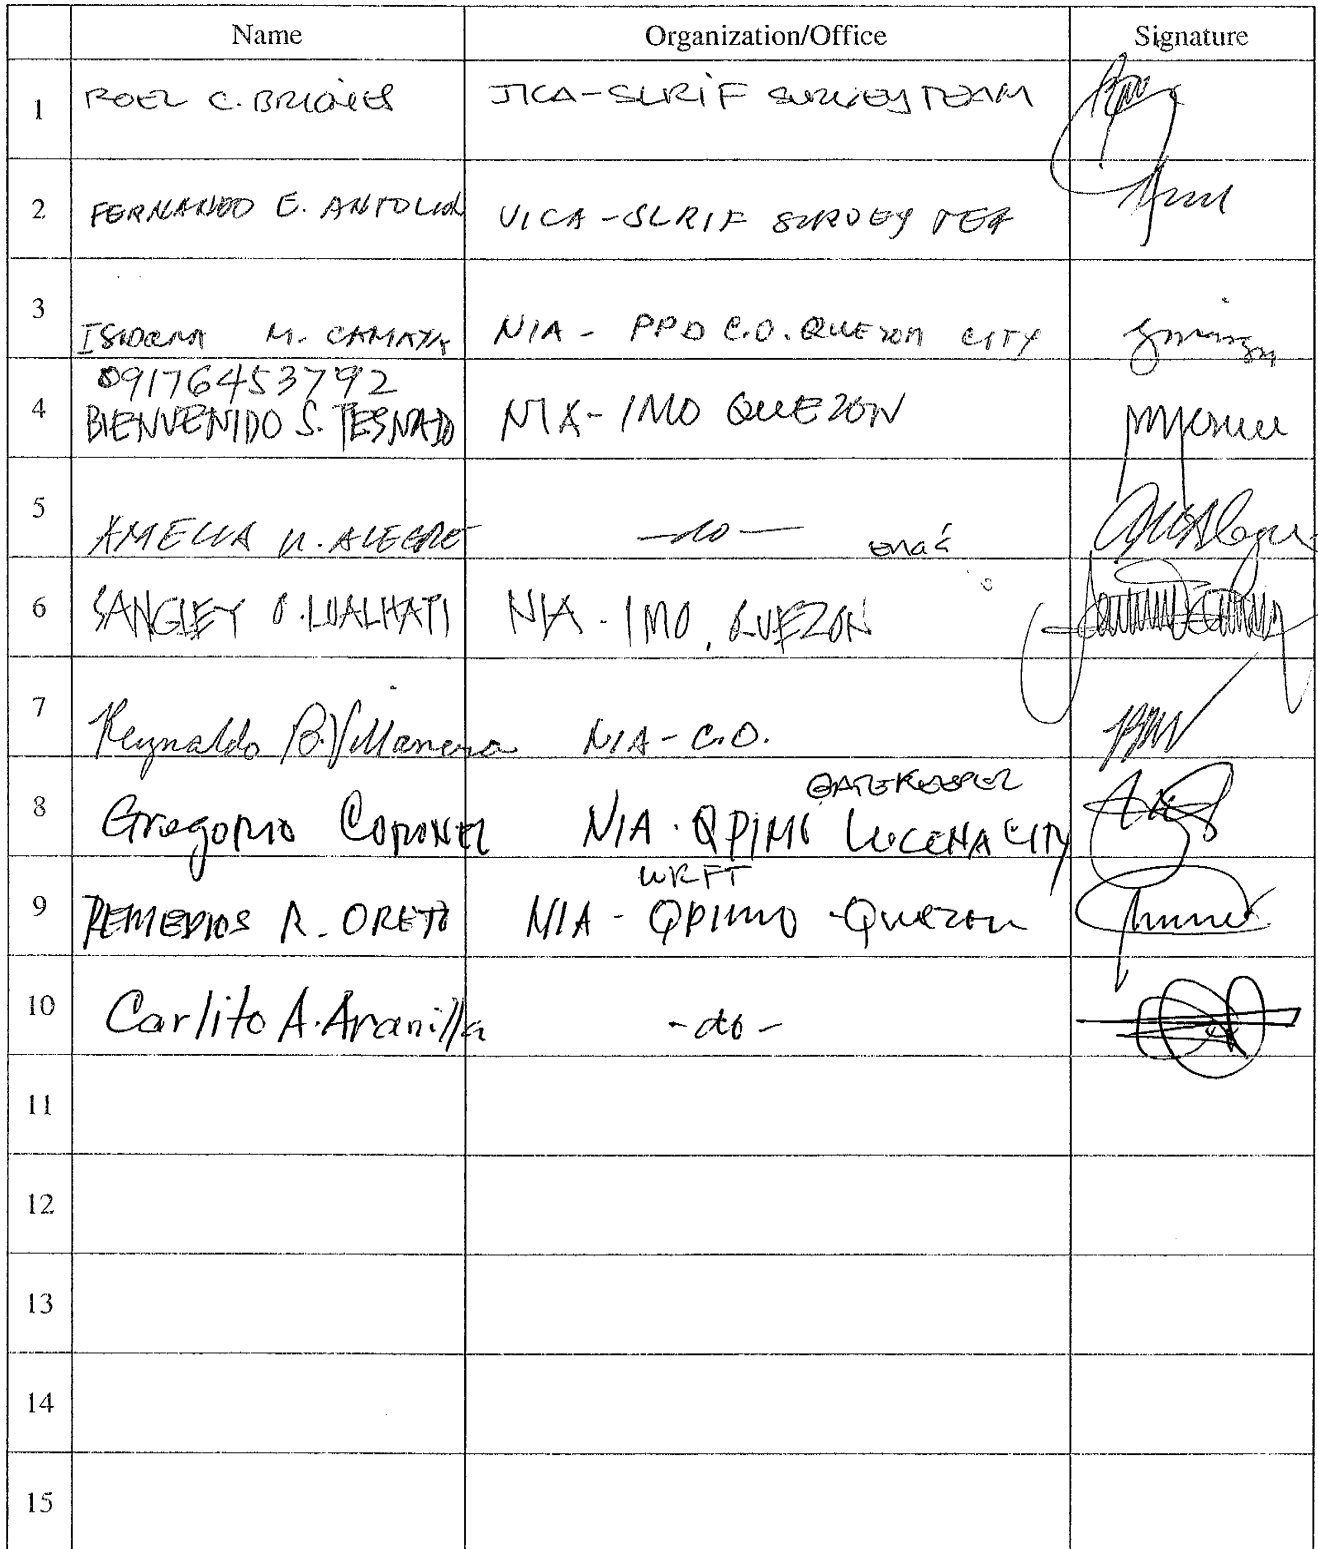 Name Organization/Office Signature
1 ROEL C. BRIONES JICA-SLRIF SURVEY TEAM
2 FERNANDO E. ANTOLIN JICA-SLRIF SURVEY TEA
3 ISIDORA M. CAMAYA NIA - PPD C.O. QUEZON CITY
09176453792
4 BIENVENIDO S. TESNADO NIA-IMO QUEZON
5 AMELIA U. ALEGRE -do-
6 SANGLEY O. LUALHATI NIA - IMO, QUEZON
7 Reynaldo B. Villanera NIA-C.O.
GATEKEEPER
8 Gregorio Coronel NIA. QPIMO LUCENA CITY
WRFT
9 REMEDIOS R. ORETO NIA - QPIMO - Quezon
10 Carlito A. Aranilla -do-
11
12
13
14
15